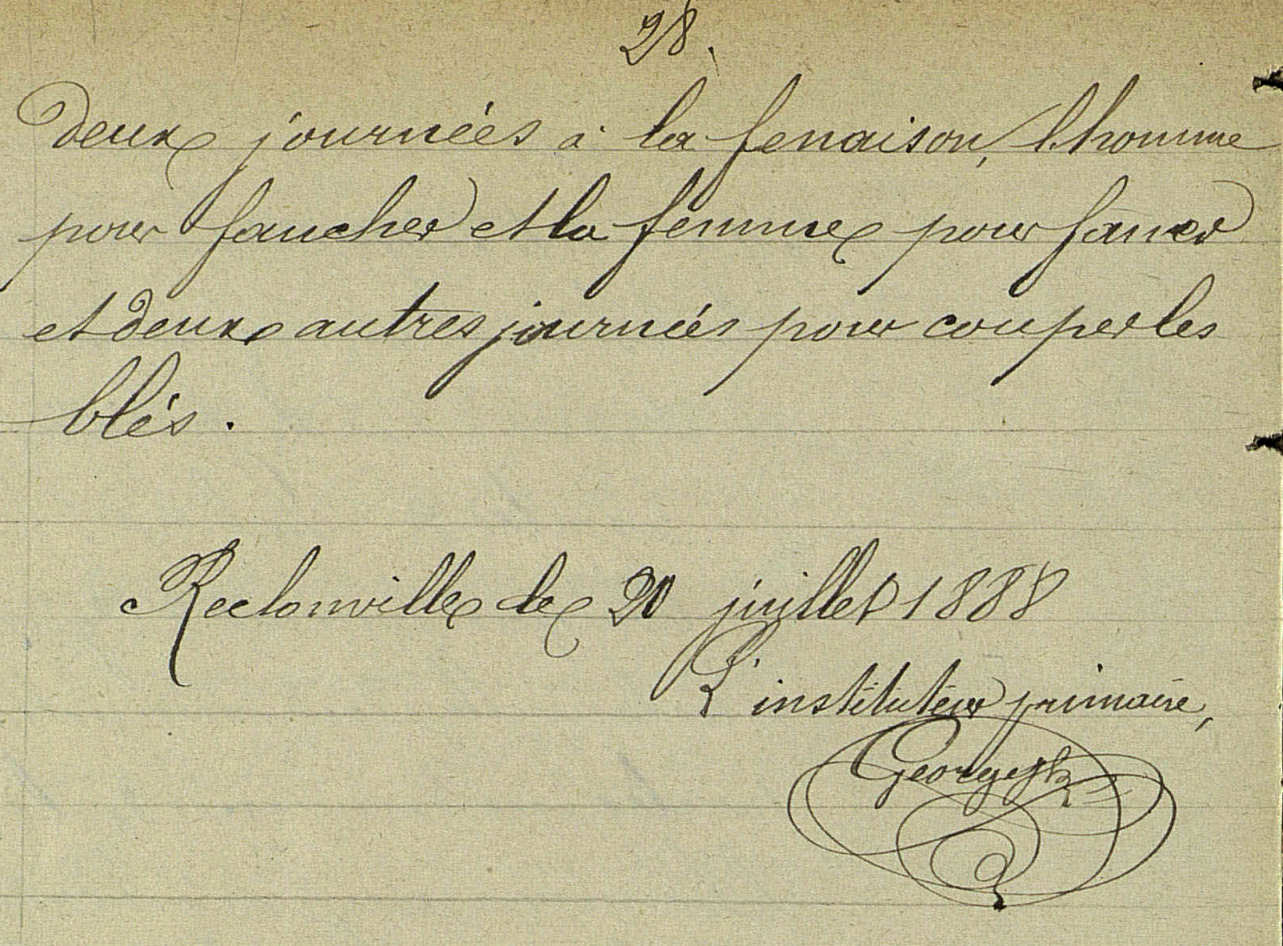 28.
deux journées à la fenaison, l'homme
pour faucher et la femme pour faner
et deux autres journées pour couper les
blés.
Reclonville le 20 juillet 1888
L'instituteur primaire,